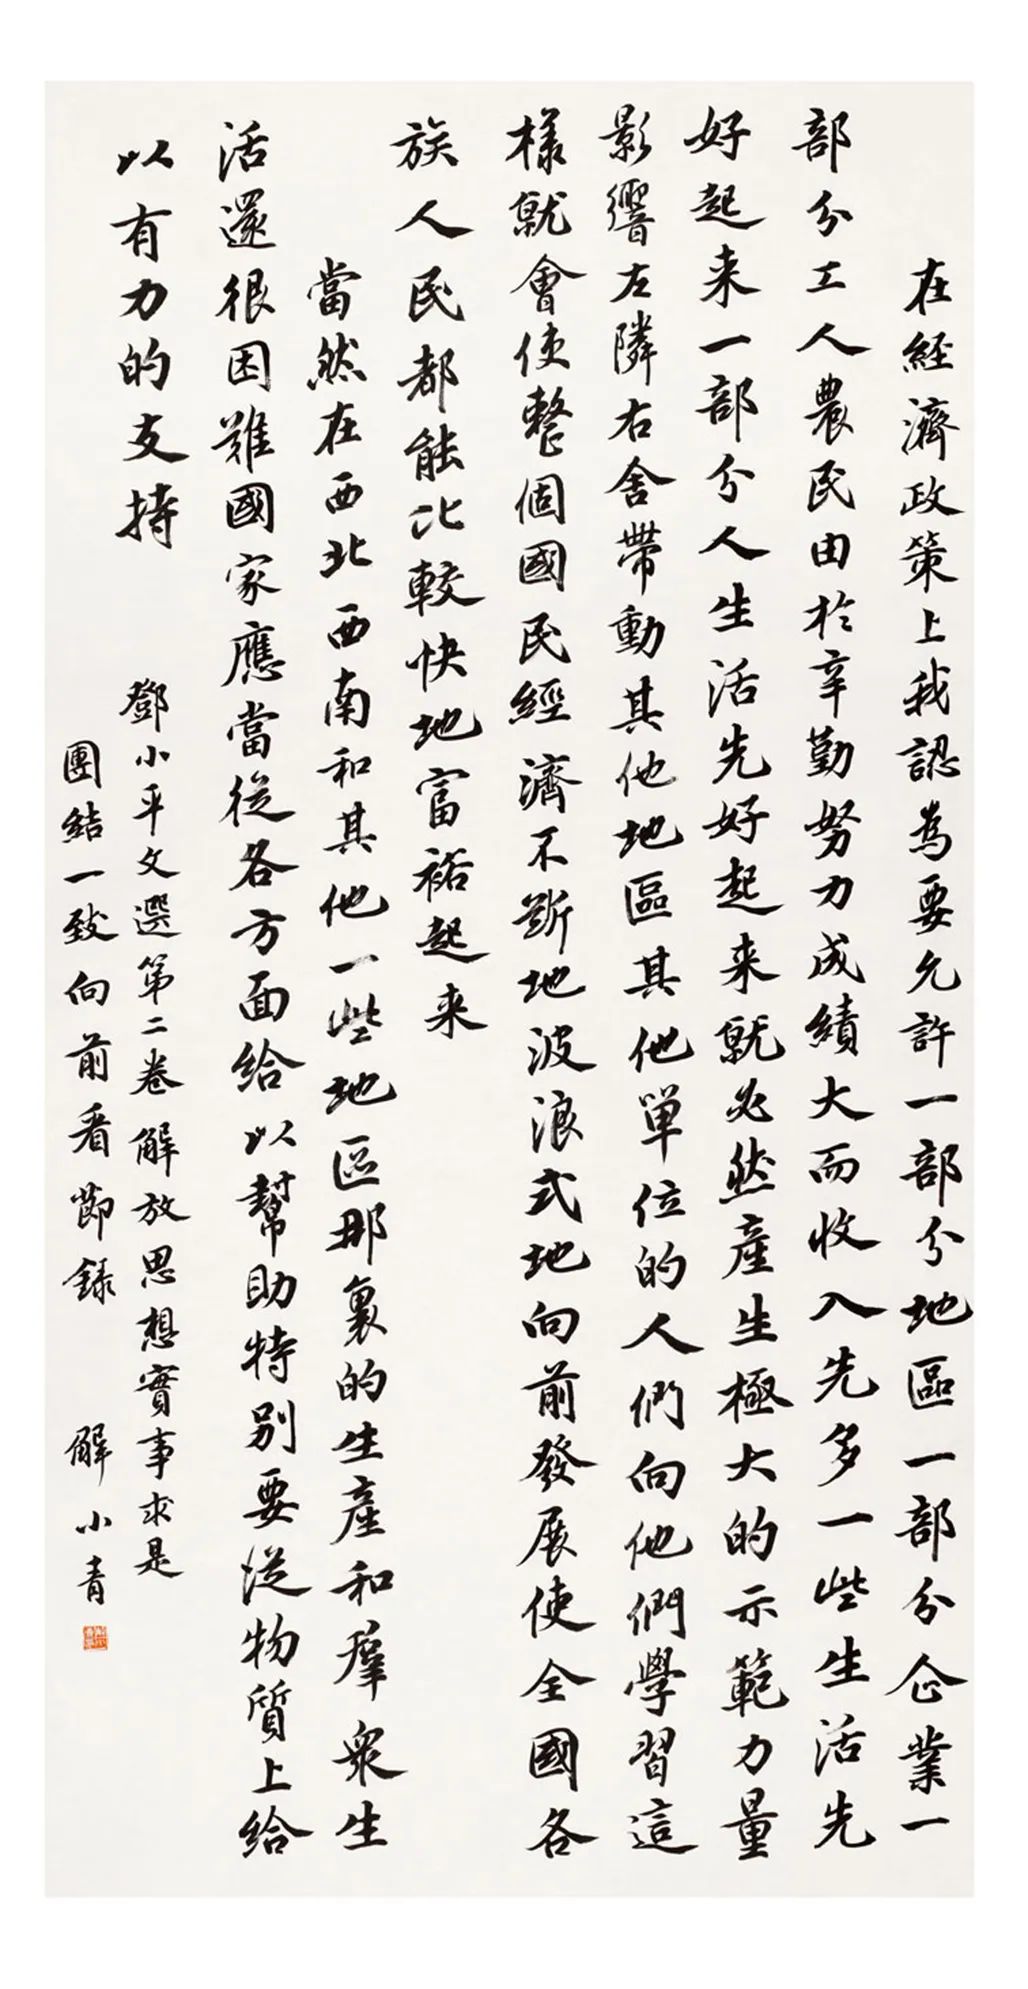 在經濟政策上我認為要允許一部分地區一部分企業一
部分工人農民由於辛勤努力成績大而收入先多一些生活先
好起来一部分人生活先好起来就必然產生極大的示範力量
影響左隣右舍帶動其他地區其他單位的人們向他們學習這
樣就會使整個國民經濟不斷地波浪式地向前發展使全國各
族人民都能比較快地富裕起来
當然在西北西南和其他一些地區那裏的生產和羣衆生
活還很困難國家應當從各方面給以幫助特別要從物質上給
以有力的支持
鄧小平文選第二卷解放思想實事求是
團結一致向前看節錄 解小青